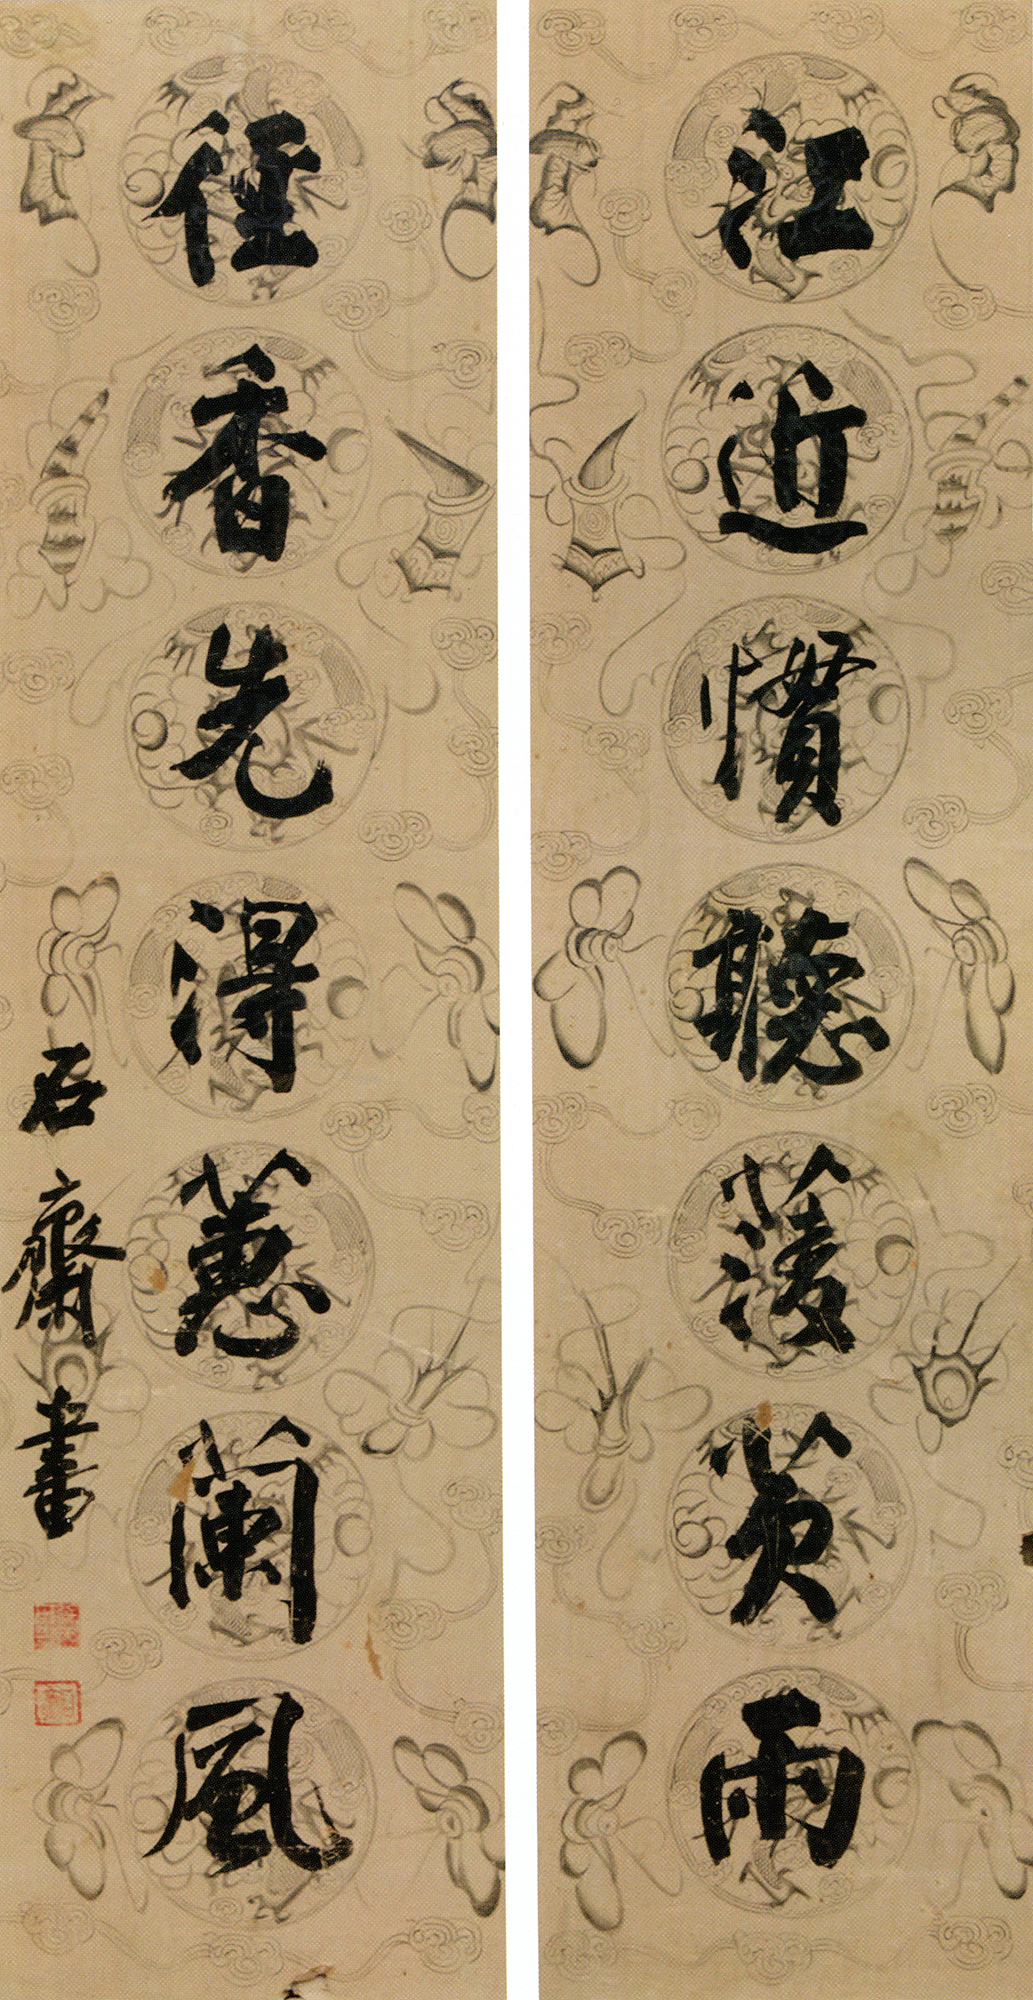 江近慣聽蔆芡雨
徑香先得蕙蘭風
石齋書